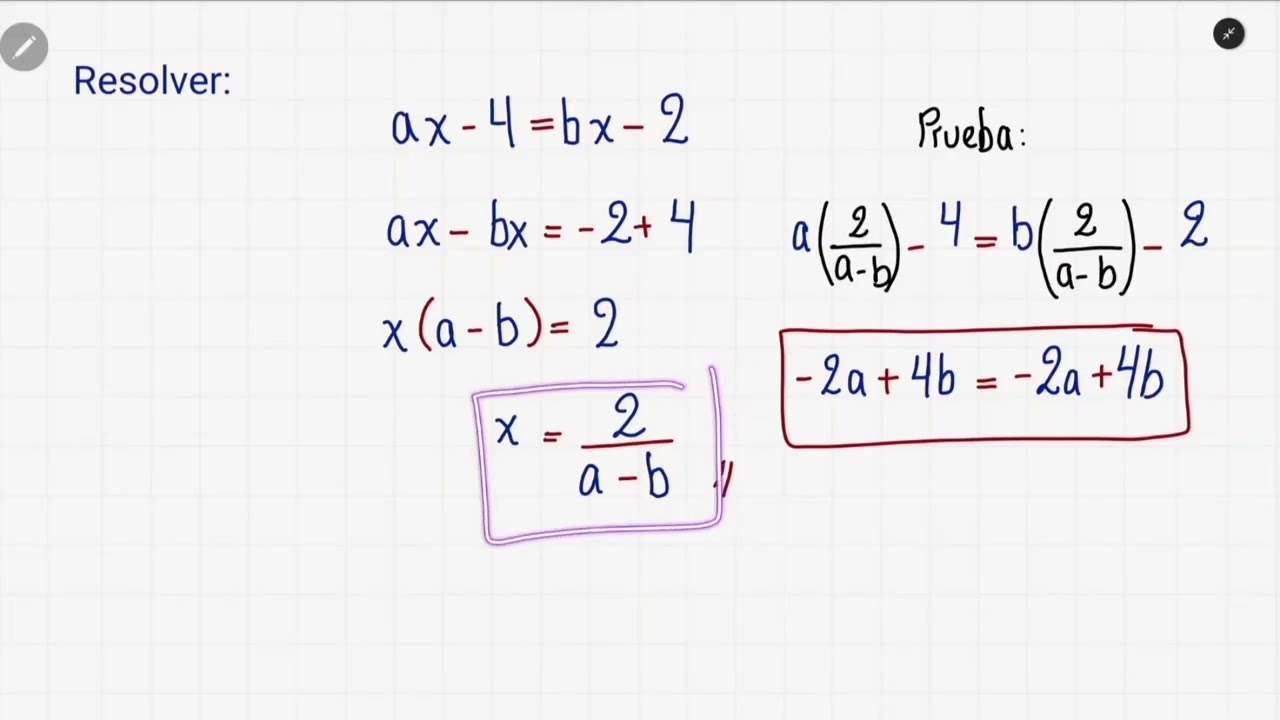 Resolver:
ax - 4 = bx - 2
ax - bx = -2 + 4
x(a - b) = 2
x = 2/(a - b)
Prueba:
a(2/(a - b)) - 4 = b(2/(a - b)) - 2
-2a + 4b = -2a + 4b